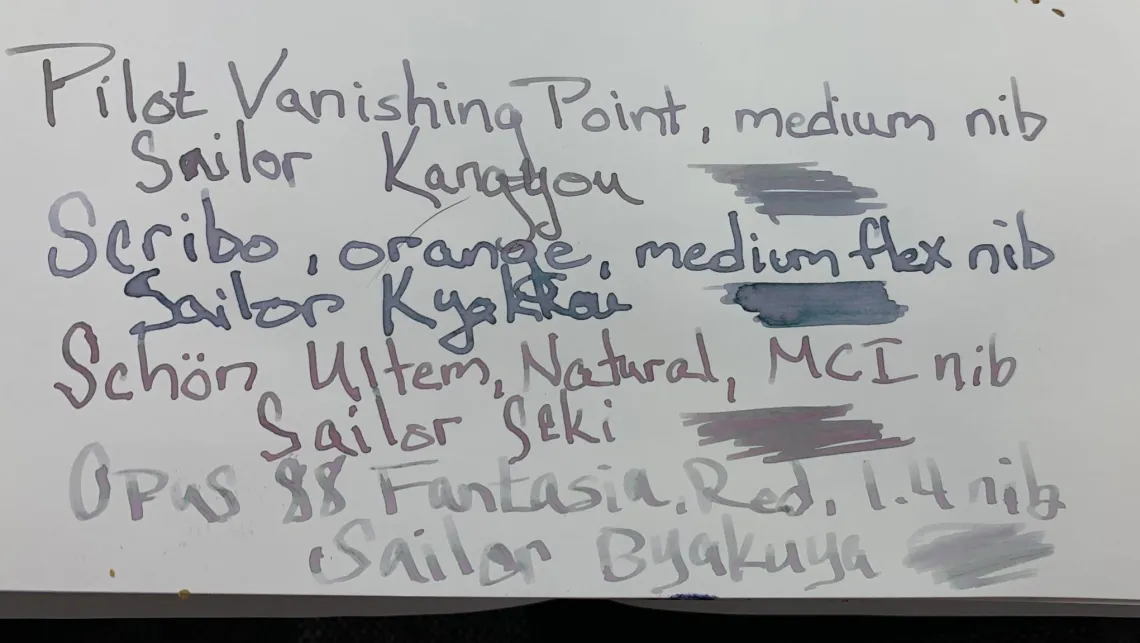 Pilot Vanishing Point, medium nib
Sailor Kangyou
Scribo, orange, medium flex nib
Sailor Kyokkou
Schön Ultem, Natural, MCI nib
Sailor Seki
Opus 88 Fantasia, Red, 1.4 nib
Sailor Byakuya